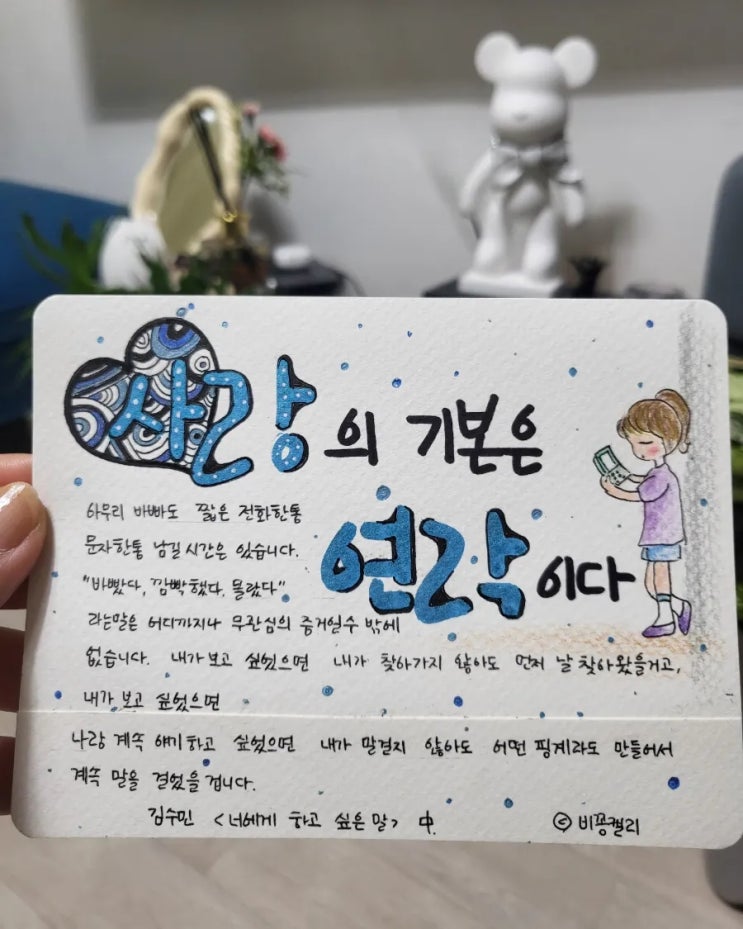 사랑의 기본은
연락이다
아무리 바빠도 짧은 전화한통
문자한통 남길 시간은 있습니다.
"바빴다, 깜빡했다, 몰랐다"
라는말은 어디까지나 무관심의 증거일수 밖에
없습니다. 내가 보고 싶었으면 내가 찾아가지 않아도 먼저 날 찾아왔을거고,
내가 보고 싶었으면
나랑 계속 얘기하고 싶었으면 내가 말걸지 않아도 어떤 핑계라도 만들어서
계속 말을 걸었을 겁니다.
김수민 <너에게 하고 싶은 말> 中.
비꽁캘리